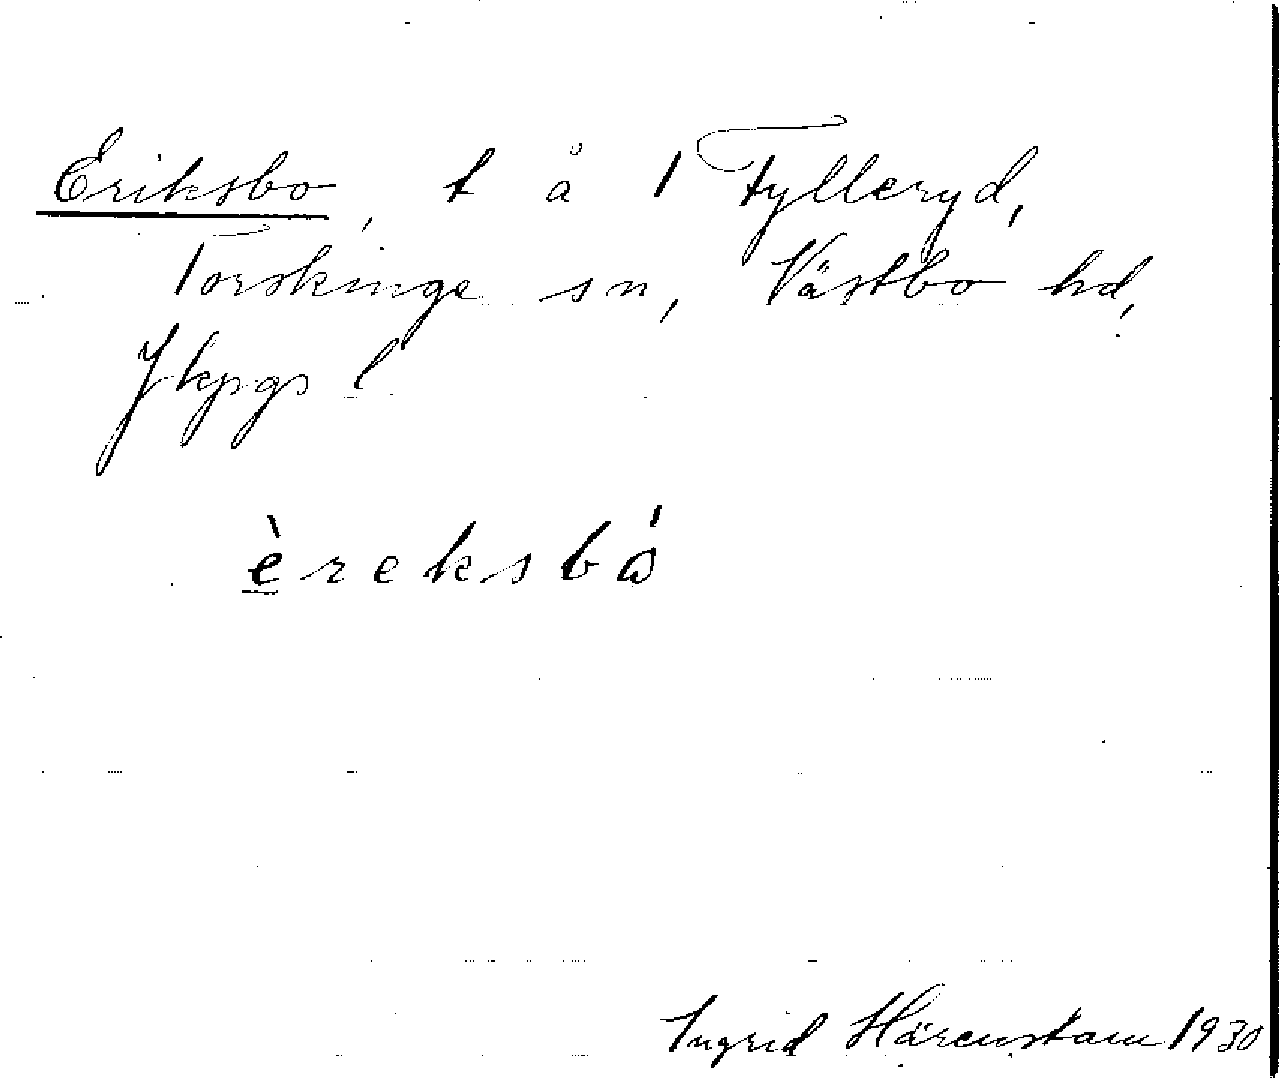 Eriksbo, t å 1 Fylleryd,
Torskinge sn, Västbo hd,
Jkpgs l
èreksbó
Ingrid Härenstam 1930